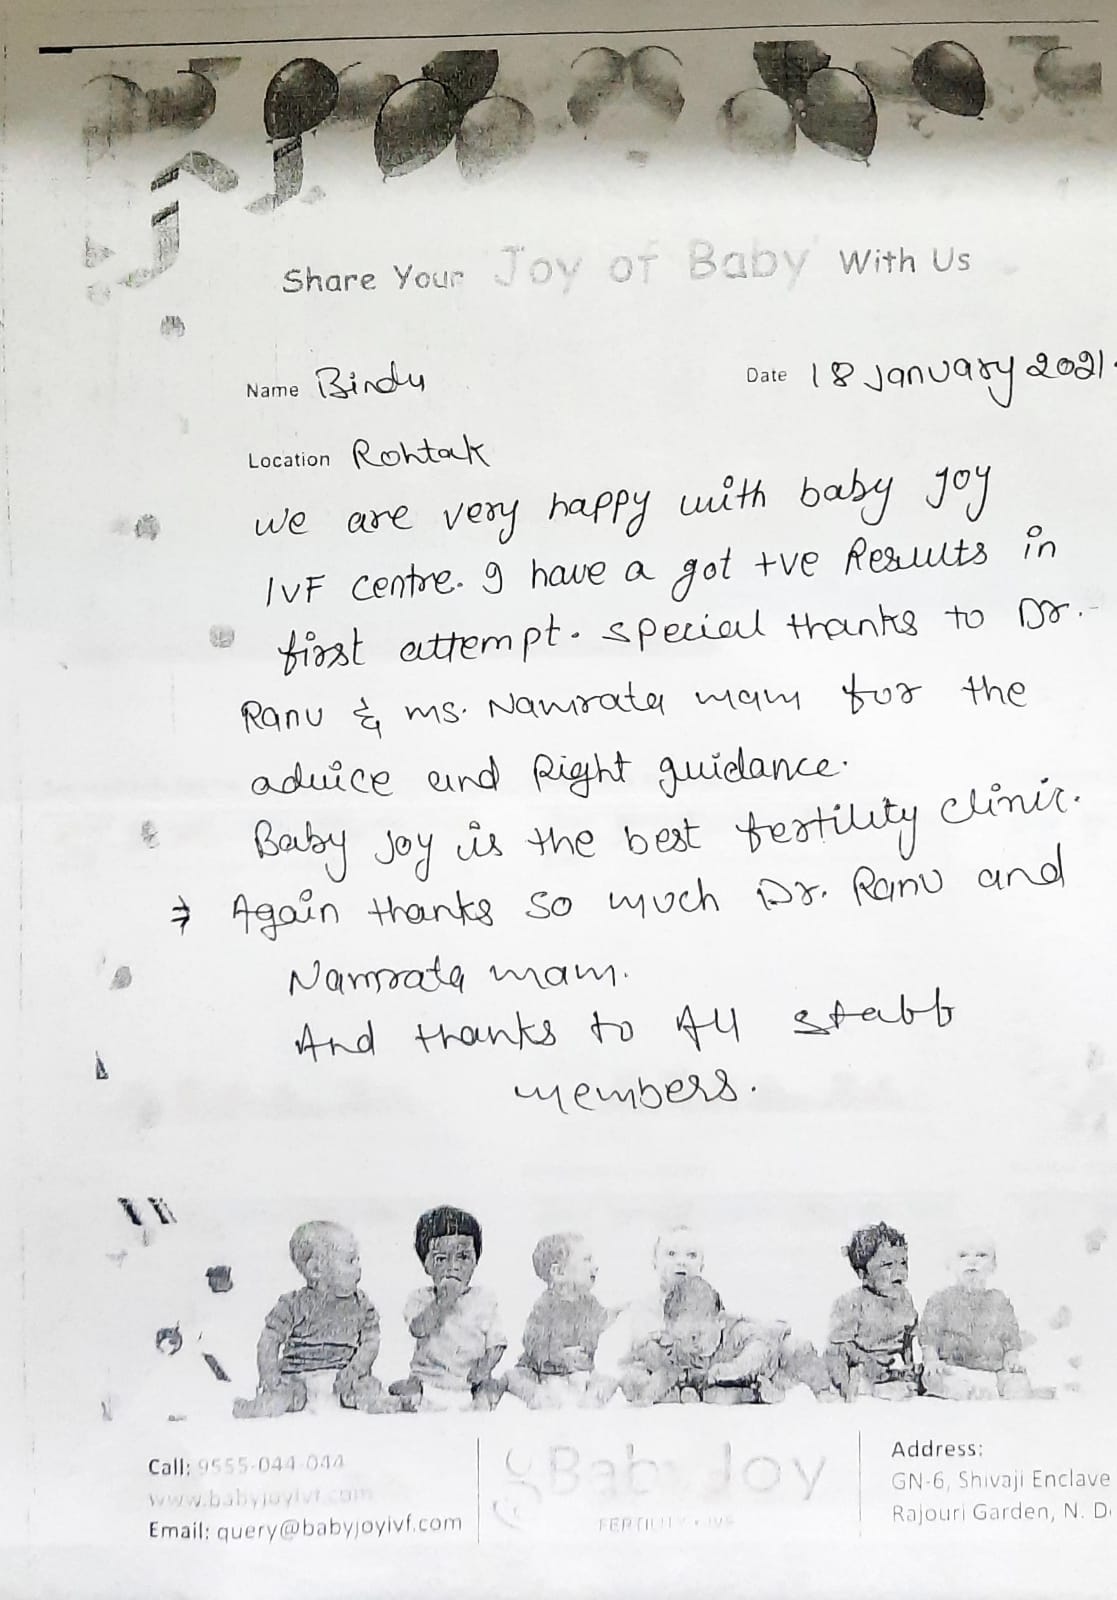 Share Your Joy of Baby With Us
Name Bindu Date 18 January 2021.
Location Rohtak
We are very happy with baby Joy
IVF centre. I have a got +ve Results in
first attempt. Special thanks to Dr.
Ranu & ms. Namrata mam for the
advice and Right guidance.
Baby Joy is the best fertility clinic.
⇒ Again thanks so much Dr. Ranu and
Namrata mam.
And thanks to All staff
members.
Call: 9555-044-044
www.babyjoyivf.com
Email: query@babyjoyivf.com
Baby Joy
FERTILITY & IVF
Address:
GN-6, Shivaji Enclave
Rajouri Garden, N. D